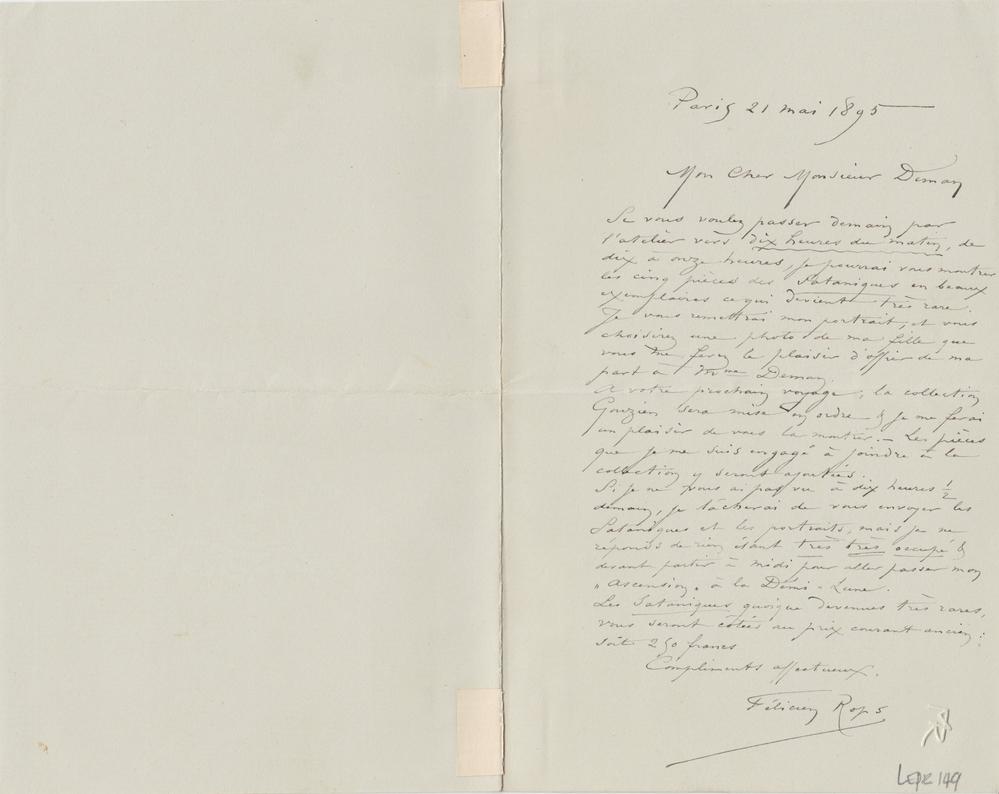 Paris 21 mai 1895
Mon Cher Monsieur Deman
Si vous voulez passer demain par
l'atelier vers dix heures du matin, de
dix à onze heures, je pourrai vous montrer
les cinq pièces des Sataniques en beaux
exemplaires ce qui devient très rare.
Je vous remettrai mon portrait, et vous
choisirez une photo de ma fille que
vous me ferez le plaisir d'offrir de ma
part à Mme Deman.
A votre prochain voyage, la collection
Gouzien sera mise en ordre & je me ferai
un plaisir de vous la montrer. – Les pièces
que je me suis engagé à joindre à la
collection y seront ajoutées.
Si je ne vous ai pas vu à dix heures ½
demain, je tâcherai de vous envoyer les
Sataniques et les portraits, mais je ne
réponds de rien étant très très occupé &
devant partir à midi pour aller passer mon
„Ascension„ à la Demi-Lune.
Les Sataniques quoique devenues très rares,
vous seront cotées au prix courant ancien :
soit 250 francs
Compliments affectueux.
Félicien Rops
LEpr 149